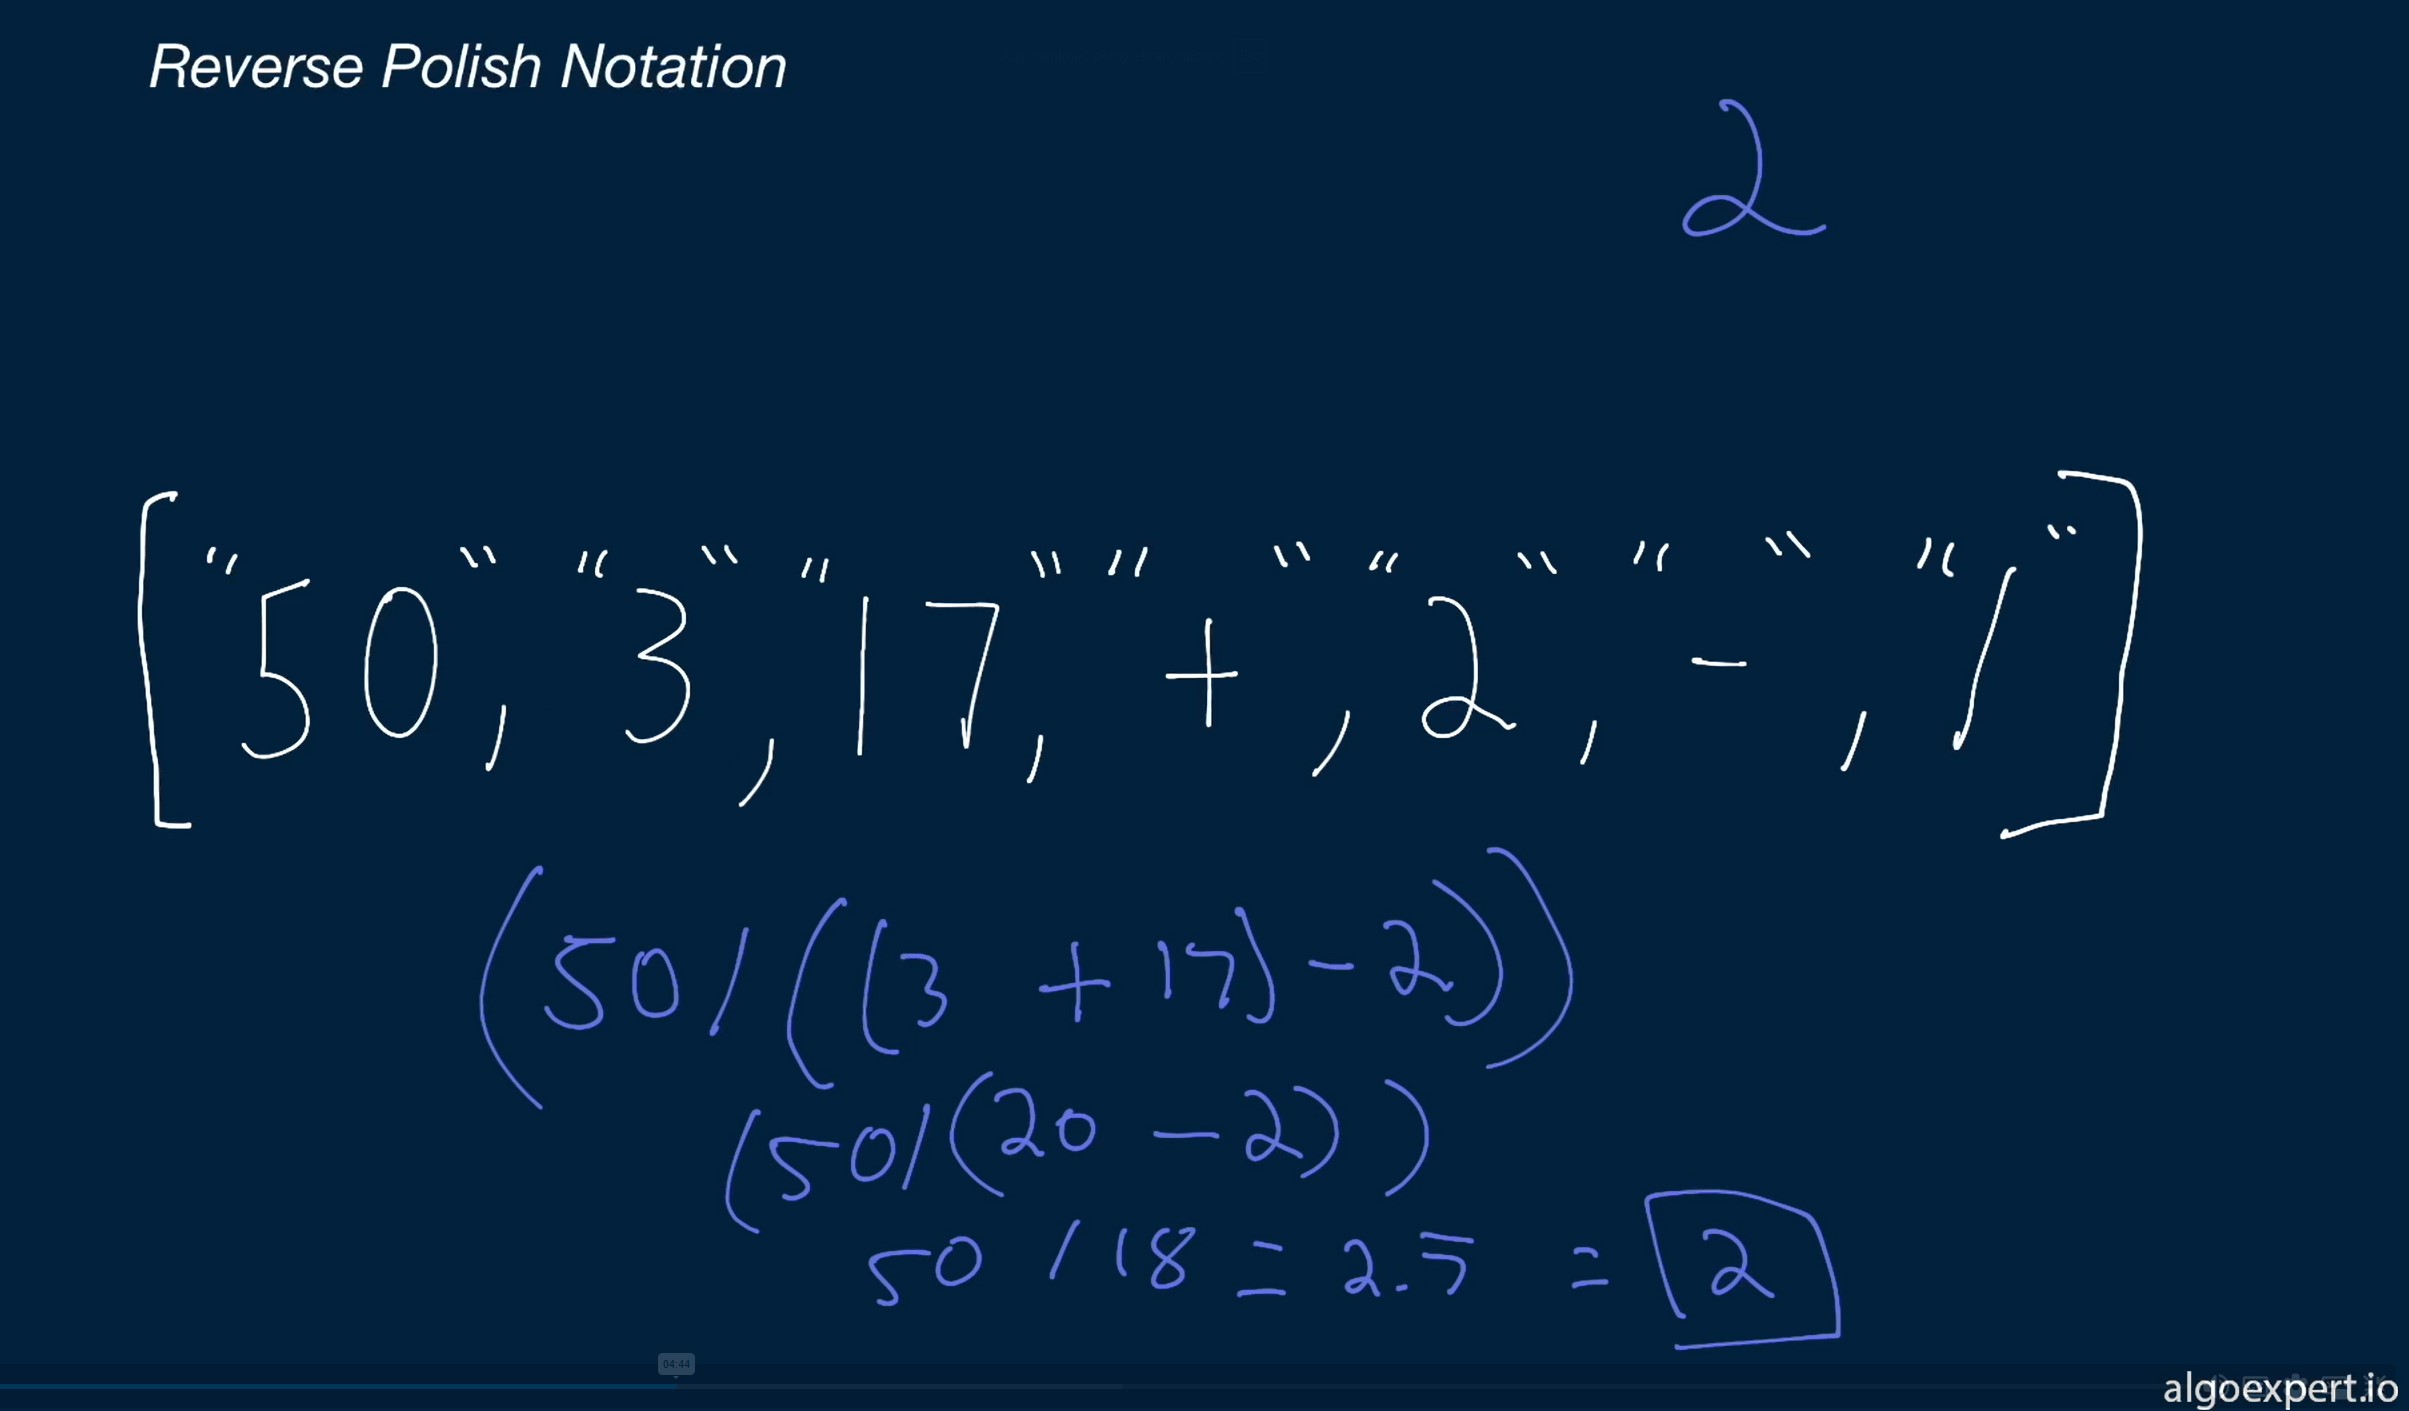 Reverse Polish Notation
2
["50", "3", "17", "+", "2", "-", "/"]
(50/((3 + 17) - 2))
(50/(20 - 2))
50 / 18 = 2.7 = 2
04:44
algoexpert.io